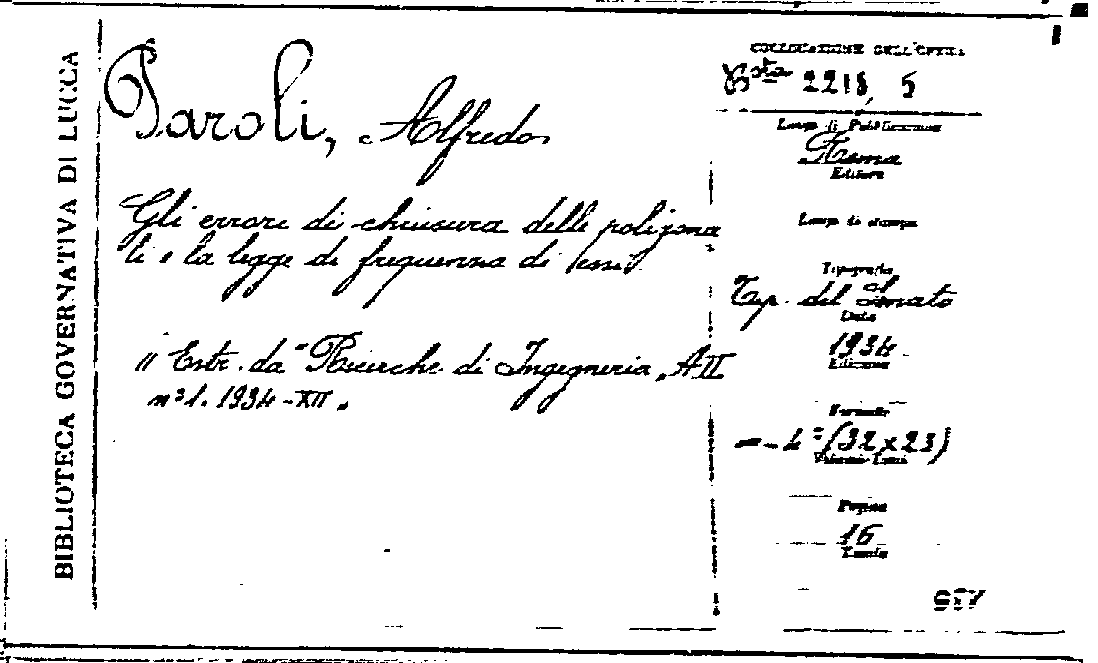 BIBLIOTECA GOVERNATIVA DI LUCCA
Paroli, Alfredo
Gli errore di chiusura delle poligona
li e la legge di frequenza di
" Estr. da "Ricerche di Ingegneria" A II
n° 1. 1934-XII "
COLLOCAZIONE DELL'OPERA
Bta 2218, 5
Luogo di Pubblicazione
Roma
Editore
Luogo di stampa
Tipografia
Tip. del Senato
Data
1934
Edizione
Formato
4° (32 x 23)
Pagine
16
Tavole